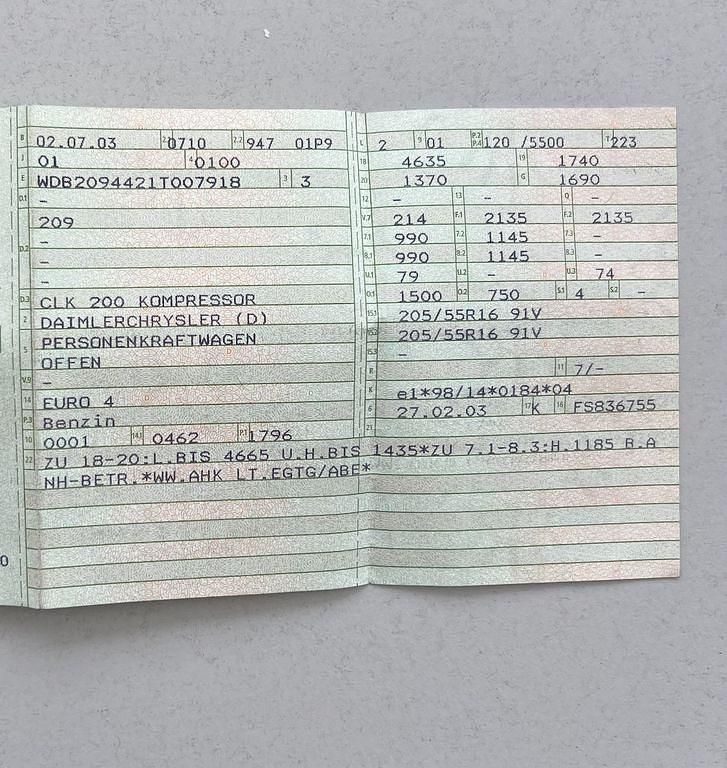 B 02.07.03 2.1 0710 2.2 947 01P9
J 01 4 0100
E WDB2094421T007918 3 3
D.1 –
209
–
D.2 –
–
D.3 CLK 200 KOMPRESSOR
2 DAIMLERCHRYSLER (D)
5 PERSONENKRAFTWAGEN
OFFEN
V.9 –
14 EURO 4
P.3 Benzin
10 0001 14.1 0462 P.1 1796
22 ZU 18-20:L.BIS 4665 U.H.BIS 1435*ZU 7.1-8.3:H.1185 B.A
NH-BETR.*WW.AHK LT.EGTG/ABE*
L 2 9 01 P.2 P.4 120 /5500 T 223
18 4635 19 1740
20 1370 G 1690
12 – 13 – Q –
V.7 214 F.1 2135 F.2 2135
7.1 990 7.2 1145 7.3 –
8.1 990 8.2 1145 8.3 –
U.1 79 U.2 – U.3 74
O.1 1500 O.2 750 S.1 4 S.2 –
15.1 205/55R16 91V
15.2 205/55R16 91V
15.3 –
R 11 7/–
K e1*98/14*0184*04
6 27.02.03 17 K 16 FS836755
21
0